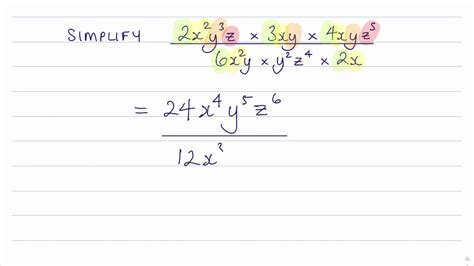 SIMPLIFY 2x²y³z × 3xy × 4xyz⁵
6x²y × y²z⁴ × 2x
= 24x⁴y⁵z⁶
12x³